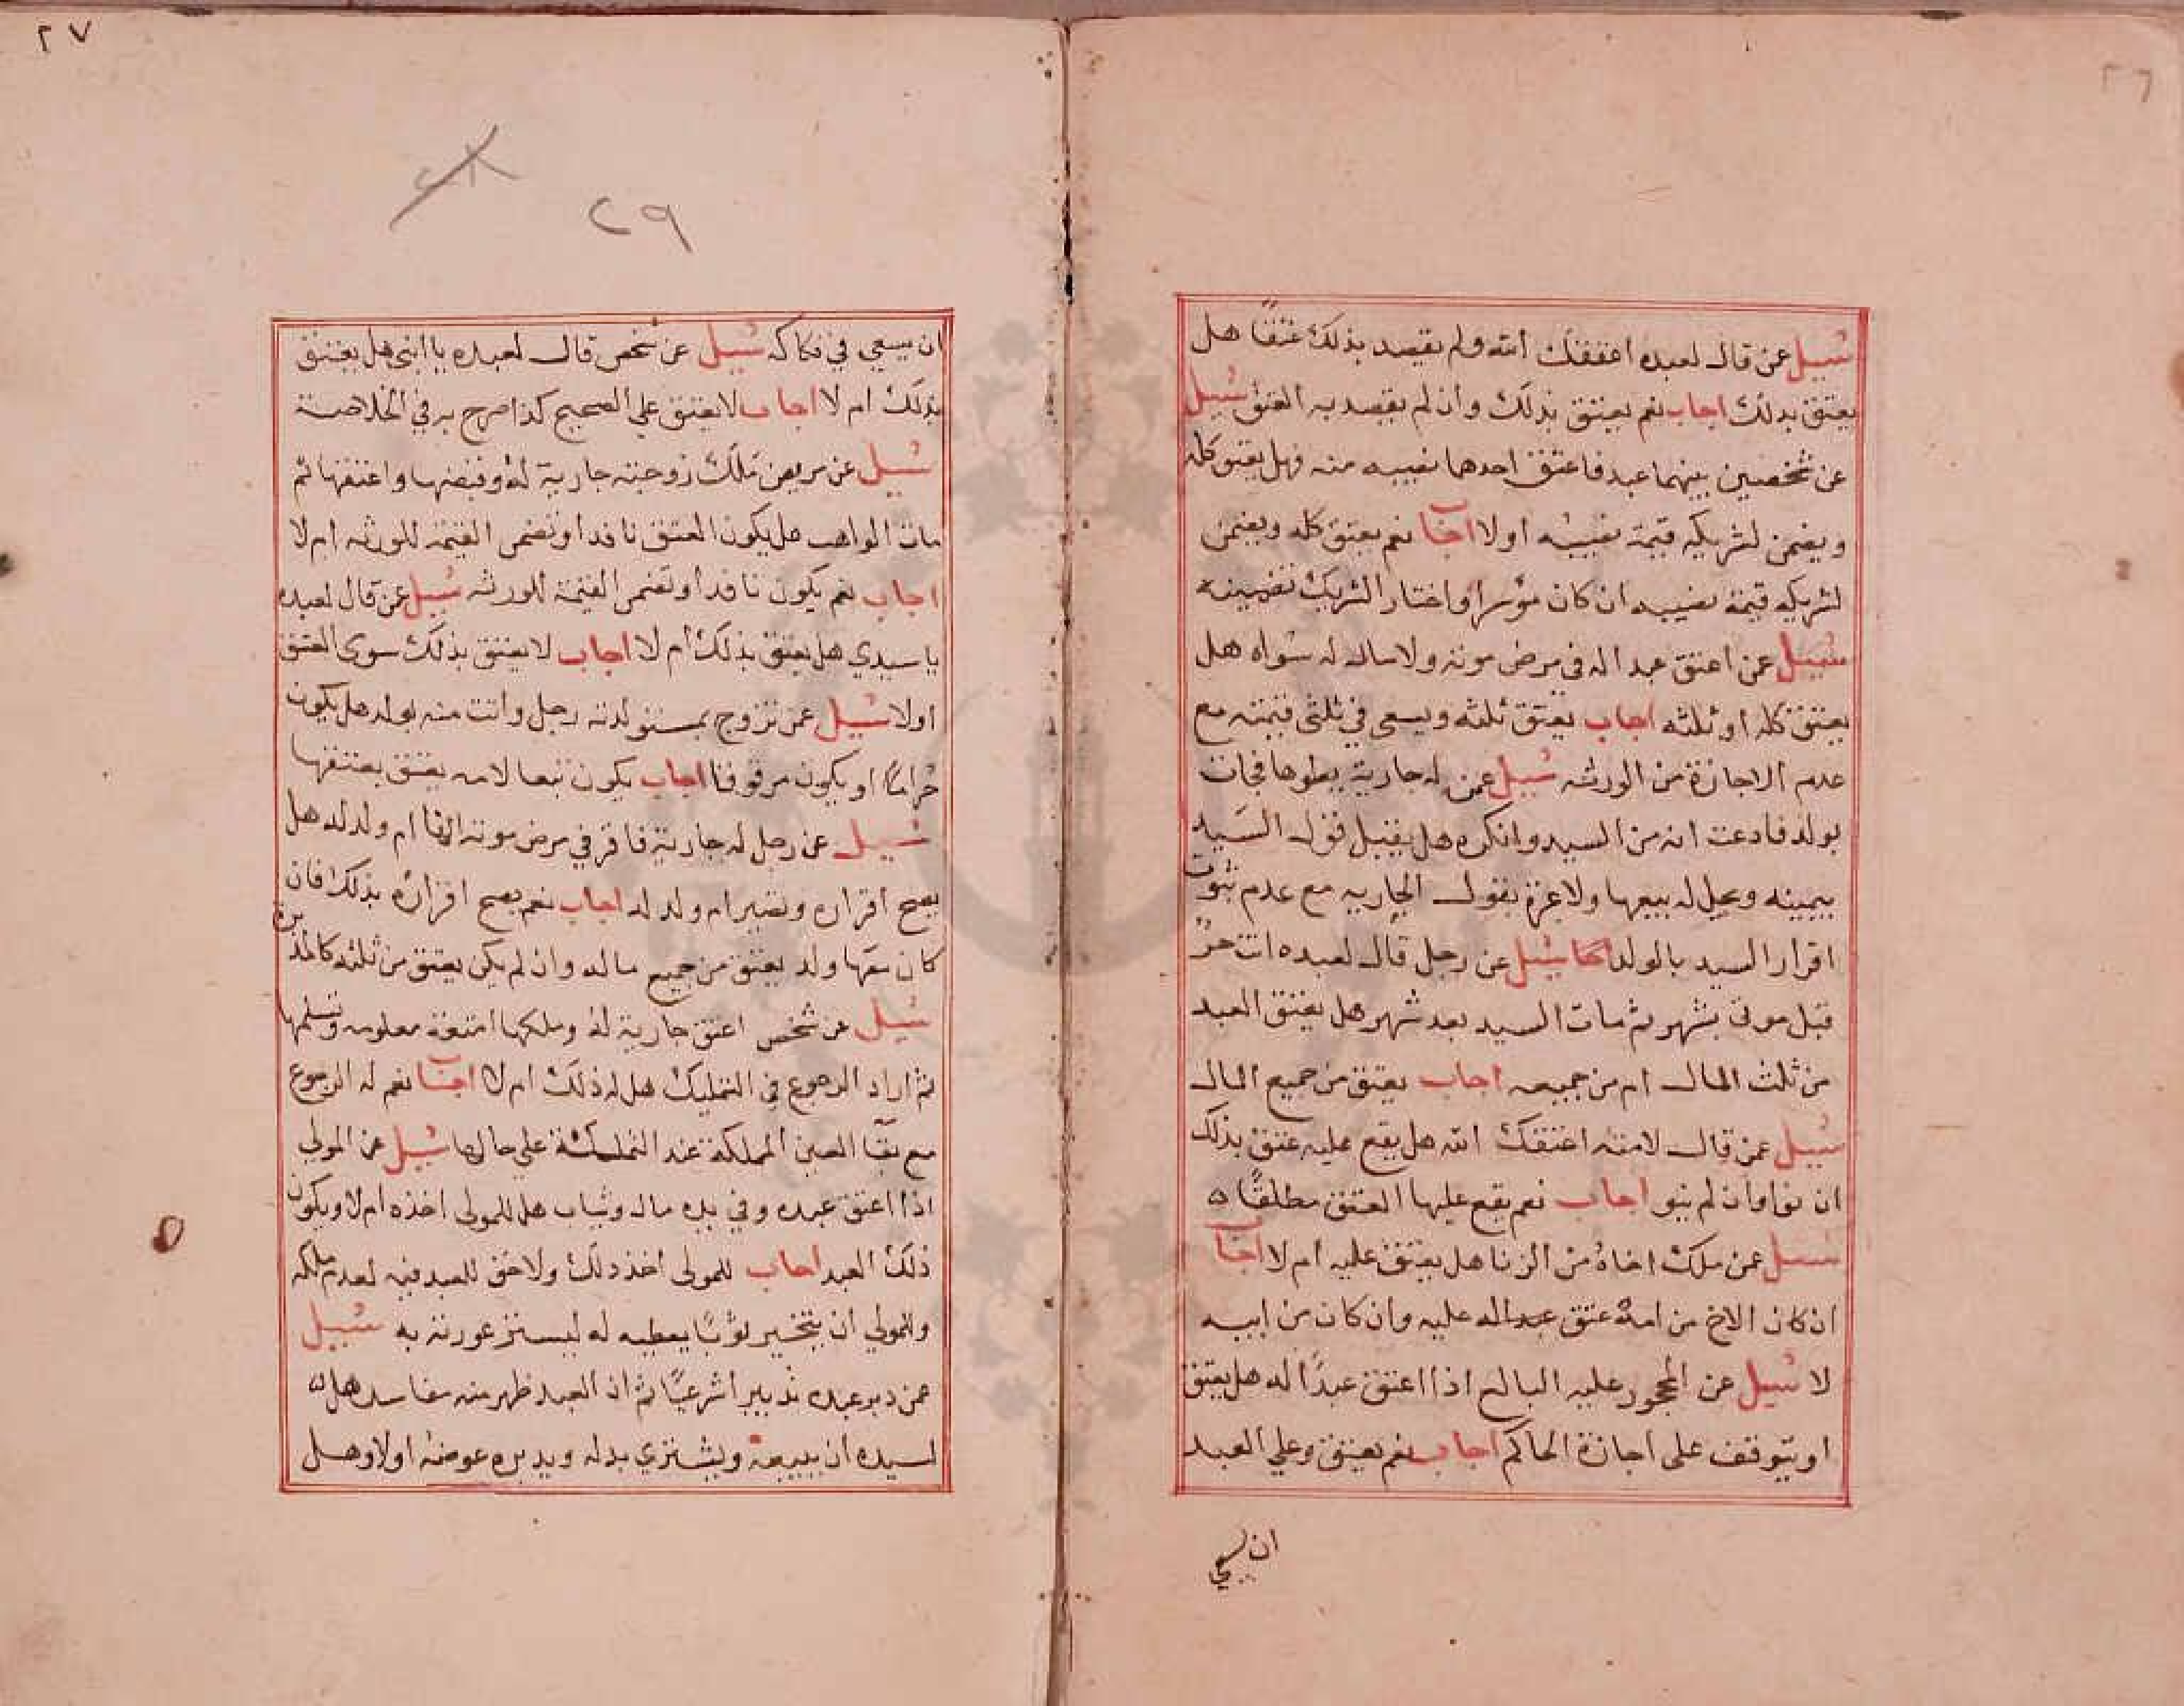 ٢٦
سئل عمن قال لعبده اعتقتك الله ولم يقصد بذلك عتقا هل
يعتق بذلك اجاب نعم يعتق بذلك وان لم يقصد به العتق سئل
عن شخصين بينهما عبد فاعتق احدهما نصيبه منه فهل يعتق كله
ويضمن لشريكه قيمة نصيبه او لا اجاب نعم يعتق كله ويضمن
لشريكه قيمة نصيبه ان كان موسرا واختار الشريك تضمينه
سئل عمن اعتق عبدا له في مرض موته ولا مال له سواه هل
يعتق كله او ثلثه اجاب يعتق ثلثه ويسعى في ثلثي قيمته مع
عدم الاجازة من الورثه سئل عمن له جارية يطوها فجات
بولد فادعت انه من السيد وانكره هل يقبل قول السيد
بيمينه ويحل له بيعها ولا عبرة بقول الجاريه مع عدم ثبوت
اقرار السيد بالولد سئل عن رجل قال لعبده انت حر
قبل موتى بشهر ثم مات السيد بعد شهر هل يعتق العبد
من ثلث المال ام من جميعه اجاب يعتق من جميع المال
سئل عمن قال لامته اعتقك الله هل يقع عليه عتق بذلك
ان نوا وان لم ينو اجاب نعم يقع عليها العتق مطلقا
سئل عمن ملك اخاه من الزنا هل يعتق عليه ام لا اجاب
ان كان الاخ من امه عتق عليه وان كان من ابيه
لا سئل عن المحجور عليه البالغ اذا اعتق عبدا له هل يعتق
او يتوقف على اجازة الحاكم اجاب نعم يعتق وعلي العبد
ان يسعي
٢٧
٢٩
ان يسعي في فكاكه سئل عن شخص قال لعبده يا ابنى هل يعتق
بذلك ام لا اجاب لا يعتق علي الصحيح كذا صرح به في الخلاصة
سئل عن مريض ملك زوجته جارية له وقبضتها واعتقتها ثم
مات الواهب هل يكون العتق نافذا وتضمن القيمة للورثه ام لا
اجاب نعم يكون نافذا وتضمن القيمة للورثه سئل عن قال لعبده
يا سيدي هل يعتق بذلك ام لا اجاب لا يعتق بذلك نوى العتق
اولا سئل عمن تزوج بمستولدته رجل واتت منه بولد هل يكون
حرا اما او يكون مرقوقا اجاب يكون تبعا لامه يعتق بعتقها
سئل عن رجل له جارية فاقر في مرض موته انها ام ولد له هل
يصح اقراره وتصير ام ولد له اجاب نعم يصح اقراره بذلك فان
كان معها ولد يعتق من جميع ماله وان لم يكن يعتق من ثلثه كالمدبره
سئل عن شخص اعتق جارية له وملكها امتعة معلومه وتسلمها
ثم اراد الرجوع في التمليك هل له ذلك ام لا اجاب نعم له الرجوع
مع بقا العين المملكة عند المتملكة علي حالها سئل عن المولي
اذا اعتق عبده وفي يده مال وثياب هل للمولى اخذه ام لا ويكون
ذلك العبد اجاب للمولى اخذ ذلك ولا حق للعبد فيه لعدم ملكه
وللمولي ان يتخير ثوبا يعطيه له ليستر عورته به سئل
عمن دبر عبده تدبيرا شرعيا ثم ان العبد ظهر منه مفاسد هل
لسيده ان يبيعه ويشتري بدله ويدبره عوضه اولا وهل